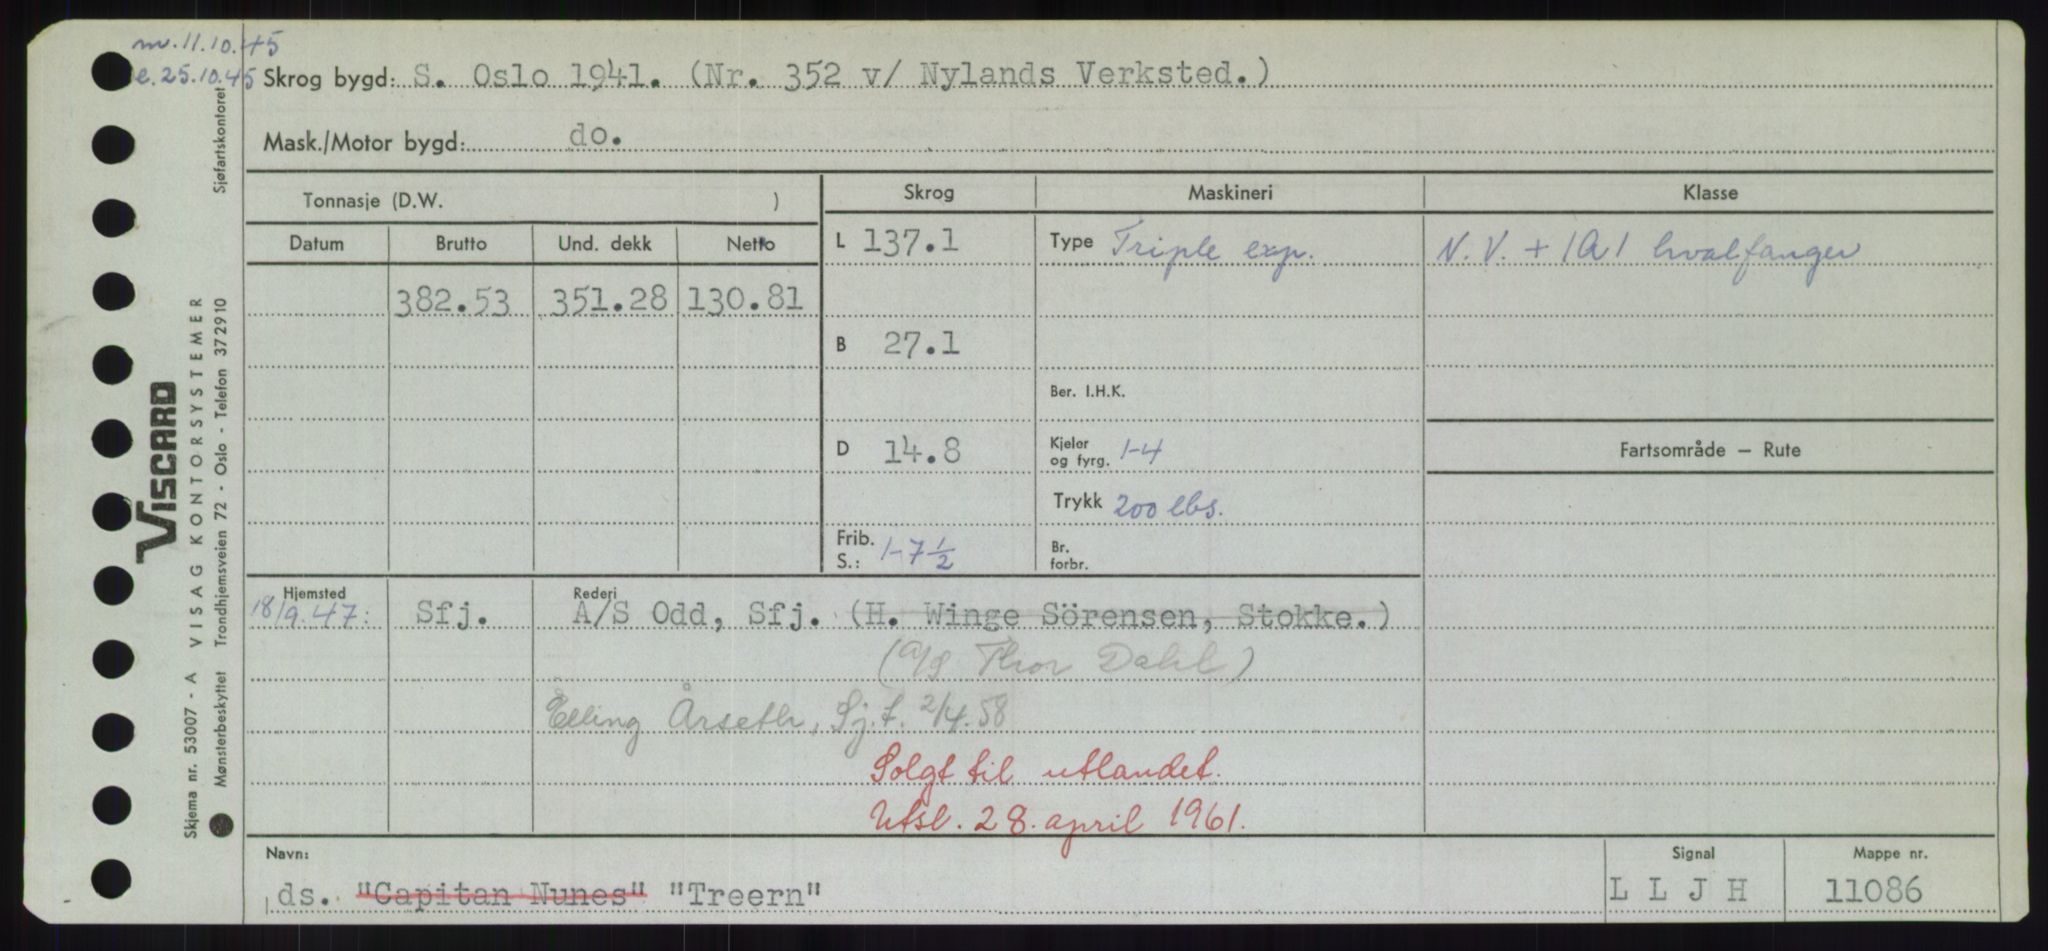 nv. 11.10.45
e. 25.10.45
Skrog bygd: S. Oslo 1941. (Nr. 352 v/ Nylands Verksted.)
Mask./Motor bygd: do.
Tonnasje (D.W. )
Datum Brutto Und. dekk Netto
382.53 351.28 130.81
Skrog
L 137.1
B 27.1
D 14.8
Frib. S.: 1-7½
Maskineri
Type Triple exp.
Ber. I.H.K.
Kjeler og fyrg. 1-4
Trykk 200 lbs.
Br. forbr.
Klasse
N.V. + 1A1 hvalfanger
Fartsområde — Rute
Hjemsted Rederi
18/9.47: Sfj. A/S Odd, Sfj. (H. Winge Sörensen, Stokke.)
(A/S Thor Dahl)
Elling Årseth, Sj.f. 2/4.58
Solgt til utlandet.
Utsl. 28. april 1961.
Navn: Signal Mappe nr.
ds. "Capitan Nunes" "Treern" LLJH 11086
VISCARD
VISAG KONTORSYSTEMER
Skjema nr. 53007 - A
Mønsterbeskyttet Trondhjemsveien 72 - Oslo - Telefon 372910 Sjøfartskontoret